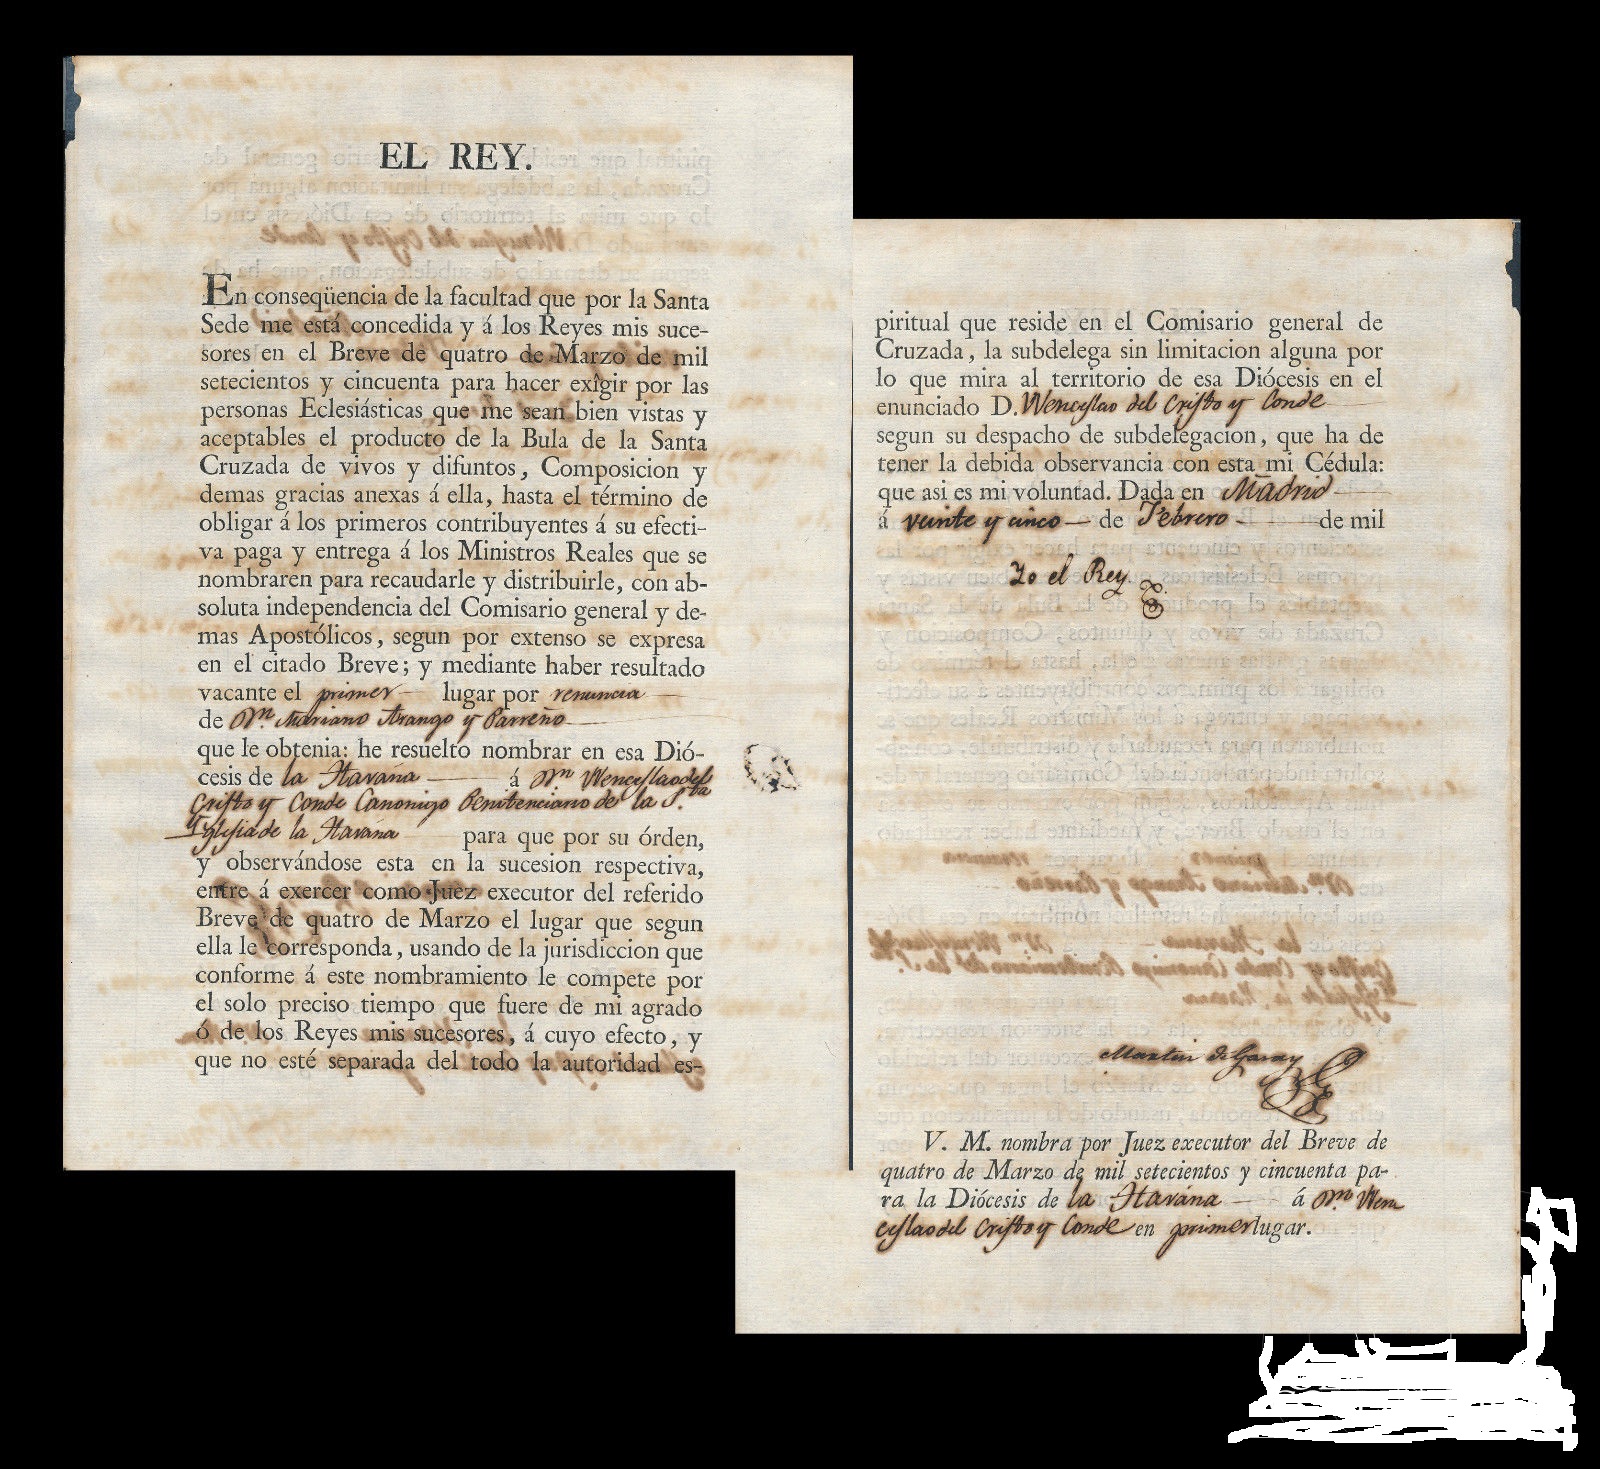 EL REY.
En conseqüencia de la facultad que por la Santa
Sede me está concedida y á los Reyes mis suce-
sores en el Breve de quatro de Marzo de mil
setecientos y cincuenta para hacer exîgir por las
personas Eclesiásticas que me sean bien vistas y
aceptables el producto de la Bula de la Santa
Cruzada de vivos y difuntos, Composicion y
demas gracias anexas á ella, hasta el término de
obligar á los primeros contribuyentes á su efecti-
va paga y entrega á los Ministros Reales que se
nombraren para recaudarle y distribuirle, con ab-
soluta independencia del Comisario general y de-
mas Apostólicos, segun por extenso se expresa
en el citado Breve; y mediante haber resultado
vacante el primer lugar por renuncia
de Dn. Mariano Arango y Parreño
que le obtenia: he resuelto nombrar en esa Dió-
cesis de la Havana á Dn Wenceslao del
Cristo y Conde Canonigo Penitenciario de la S.ta
Yglesia de la Havana para que por su órden,
y observándose esta en la sucesion respectiva,
entre á exercer como Juez executor del referido
Breve de quatro de Marzo el lugar que segun
ella le corresponda, usando de la jurisdiccion que
conforme á este nombramiento le compete por
el solo preciso tiempo que fuere de mi agrado
ó de los Reyes mis sucesores, á cuyo efecto, y
que no esté separada del todo la autoridad es-
piritual que reside en el Comisario general de
Cruzada, la subdelega sin limitacion alguna por
lo que mira al territorio de esa Diócesis en el
enunciado D. Wenceslao del Cristo y Conde
segun su despacho de subdelegacion, que ha de
tener la debida observancia con esta mi Cédula:
que asi es mi voluntad. Dada en Madrid
á veinte y cinco de Febrero de mil
Yo el Rey
Martin de Garay
V. M. nombra por Juez executor del Breve de
quatro de Marzo de mil setecientos y cincuenta pa-
ra la Diócesis de la Havana á Dn. Wen
ceslao del Cristo y Conde en primer lugar.